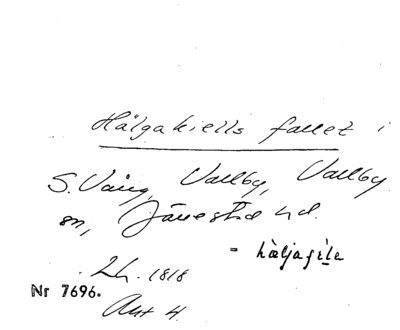 Hälgakiells fallet i
S. Vång, Vallby, Vallby
sn, Järrestad hd.
- hæljaféla
Lh. 1818
Nr 7696.
Akt 4.